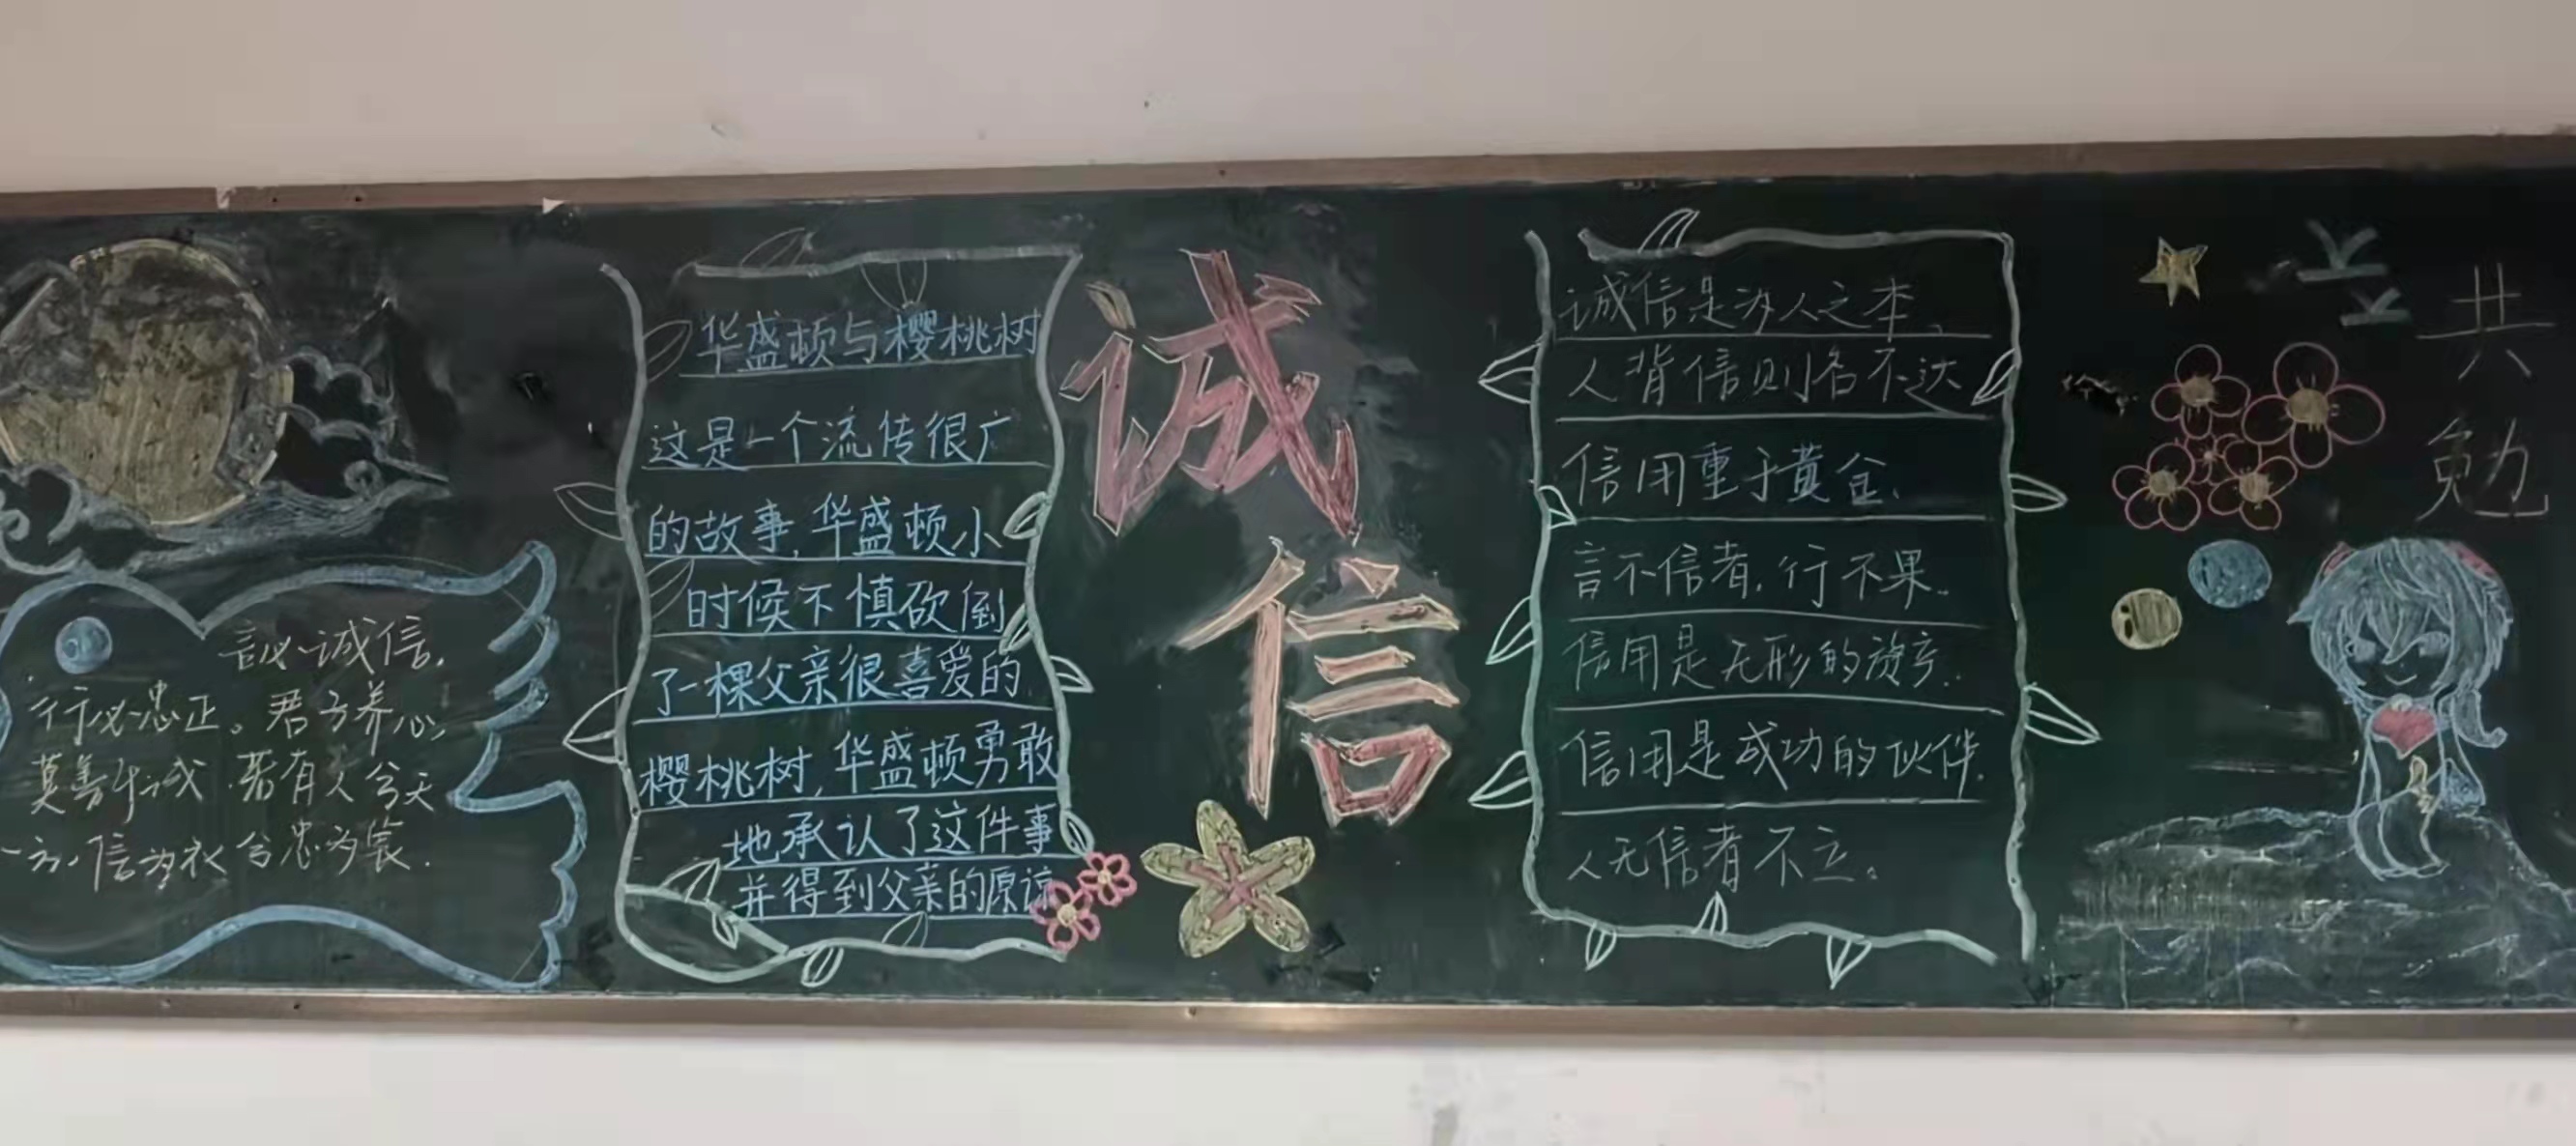 言必诚信,
行必忠正。君子养心
莫善于诚.若有人兮天
一方,信为衣兮忠为裳.
华盛顿与樱桃树
这是一个流传很广
的故事,华盛顿小
时候不慎砍倒
了一棵父亲很喜爱的
樱桃树,华盛顿勇敢
地承认了这件事
并得到父亲的原谅
诚
信
诚信是为人之本、
人背信则名不达
信用重于黄金、
言不信者,行不果.
信用是无形的资产.
信用是成功的伙伴.
人无信者不立。
共
勉